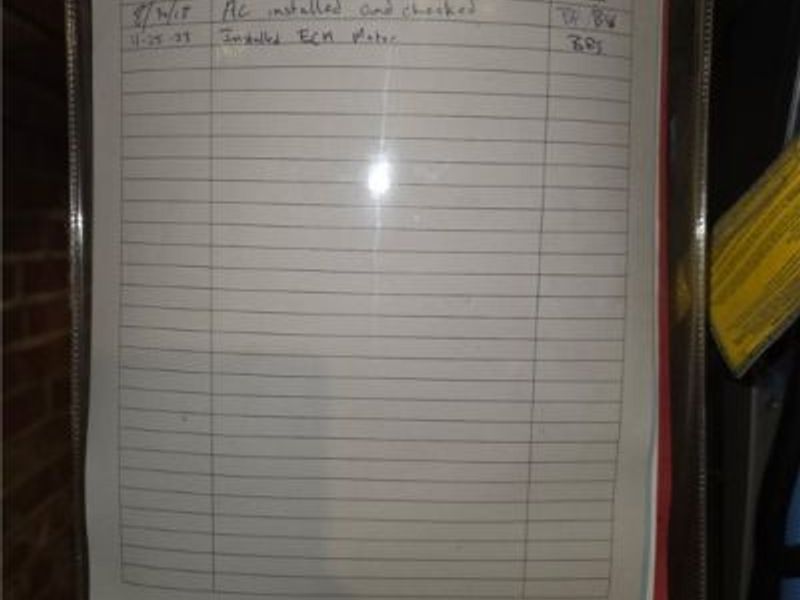 8/30/18 AC installed and checked
4-25-23 Installed ECM Motor